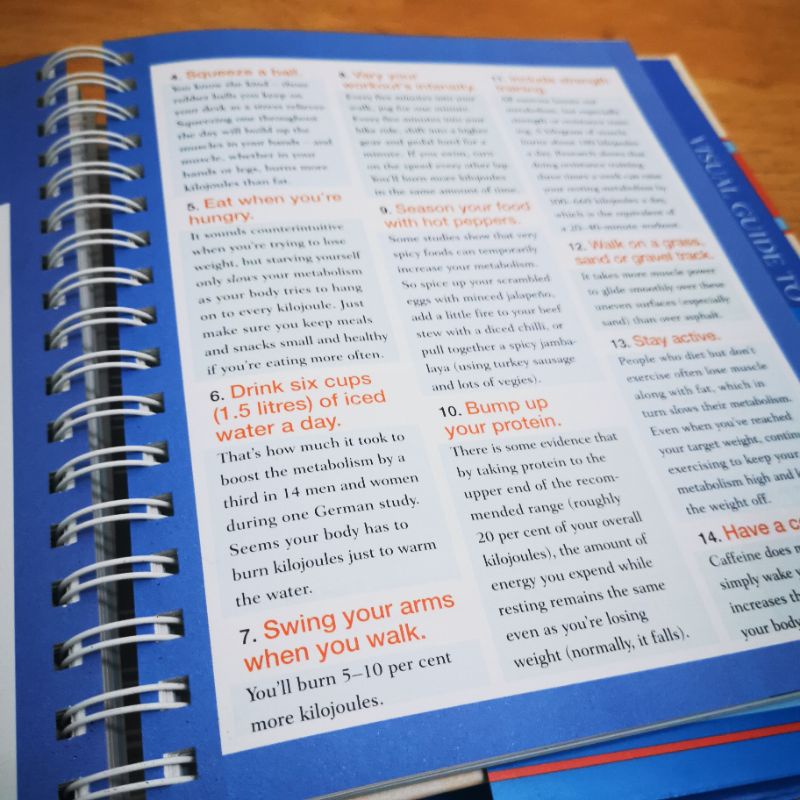 4. Squeeze a ball.
You know the kind – those
rubber balls you keep on
your desk as a stress reliever.
Squeezing one throughout
the day will build up the
muscles in your hands – and
muscle, whether in your
hands or legs, burns more
kilojoules than fat.
5. Eat when you're
hungry.
It sounds counterintuitive
when you're trying to lose
weight, but starving yourself
only slows your metabolism
as your body tries to hang
on to every kilojoule. Just
make sure you keep meals
and snacks small and healthy
if you're eating more often.
6. Drink six cups
(1.5 litres) of iced
water a day.
That's how much it took to
boost the metabolism by a
third in 14 men and women
during one German study.
Seems your body has to
burn kilojoules just to warm
the water.
7. Swing your arms
when you walk.
You'll burn 5–10 per cent
more kilojoules.
8. Vary your
workout's intensity.
Every five minutes into your
walk, jog for one minute.
Every five minutes into your
bike ride, shift into a higher
gear and pedal hard for a
minute. If you swim, turn
on the speed every other lap.
You'll burn more kilojoules
in the same amount of time.
9. Season your food
with hot peppers.
Some studies show that very
spicy foods can temporarily
increase your metabolism.
So spice up your scrambled
eggs with minced jalapeño,
add a little fire to your beef
stew with a diced chilli, or
pull together a spicy jamba-
laya (using turkey sausage
and lots of vegies).
10. Bump up
your protein.
There is some evidence that
by taking protein to the
upper end of the recom-
mended range (roughly
20 per cent of your overall
kilojoules), the amount of
energy you expend while
resting remains the same
even as you're losing
weight (normally, it falls).
11. Include strength
training.
All exercise boosts
metabolism, but especially
strength or resistance
burns about
a day. Research shows that
doing resistance training
three times a week can raise
your resting metabolism by
kilojoules a day,
which is the equivalent of
a 20–40-minute workout.
12. Walk on a grass,
sand or gravel track.
It takes more muscle power
to glide smoothly over these
uneven surfaces (especially
sand) than over asphalt.
13. Stay active.
People who diet but don't
exercise often lose muscle
along with fat, which in
turn slows their metabolism.
Even when you've reached
your target weight, continu
exercising to keep your
metabolism high and k
the weight off.
14. Have a c
Caffeine does m
simply wake y
increases th
your body
VISUAL GUIDE TO